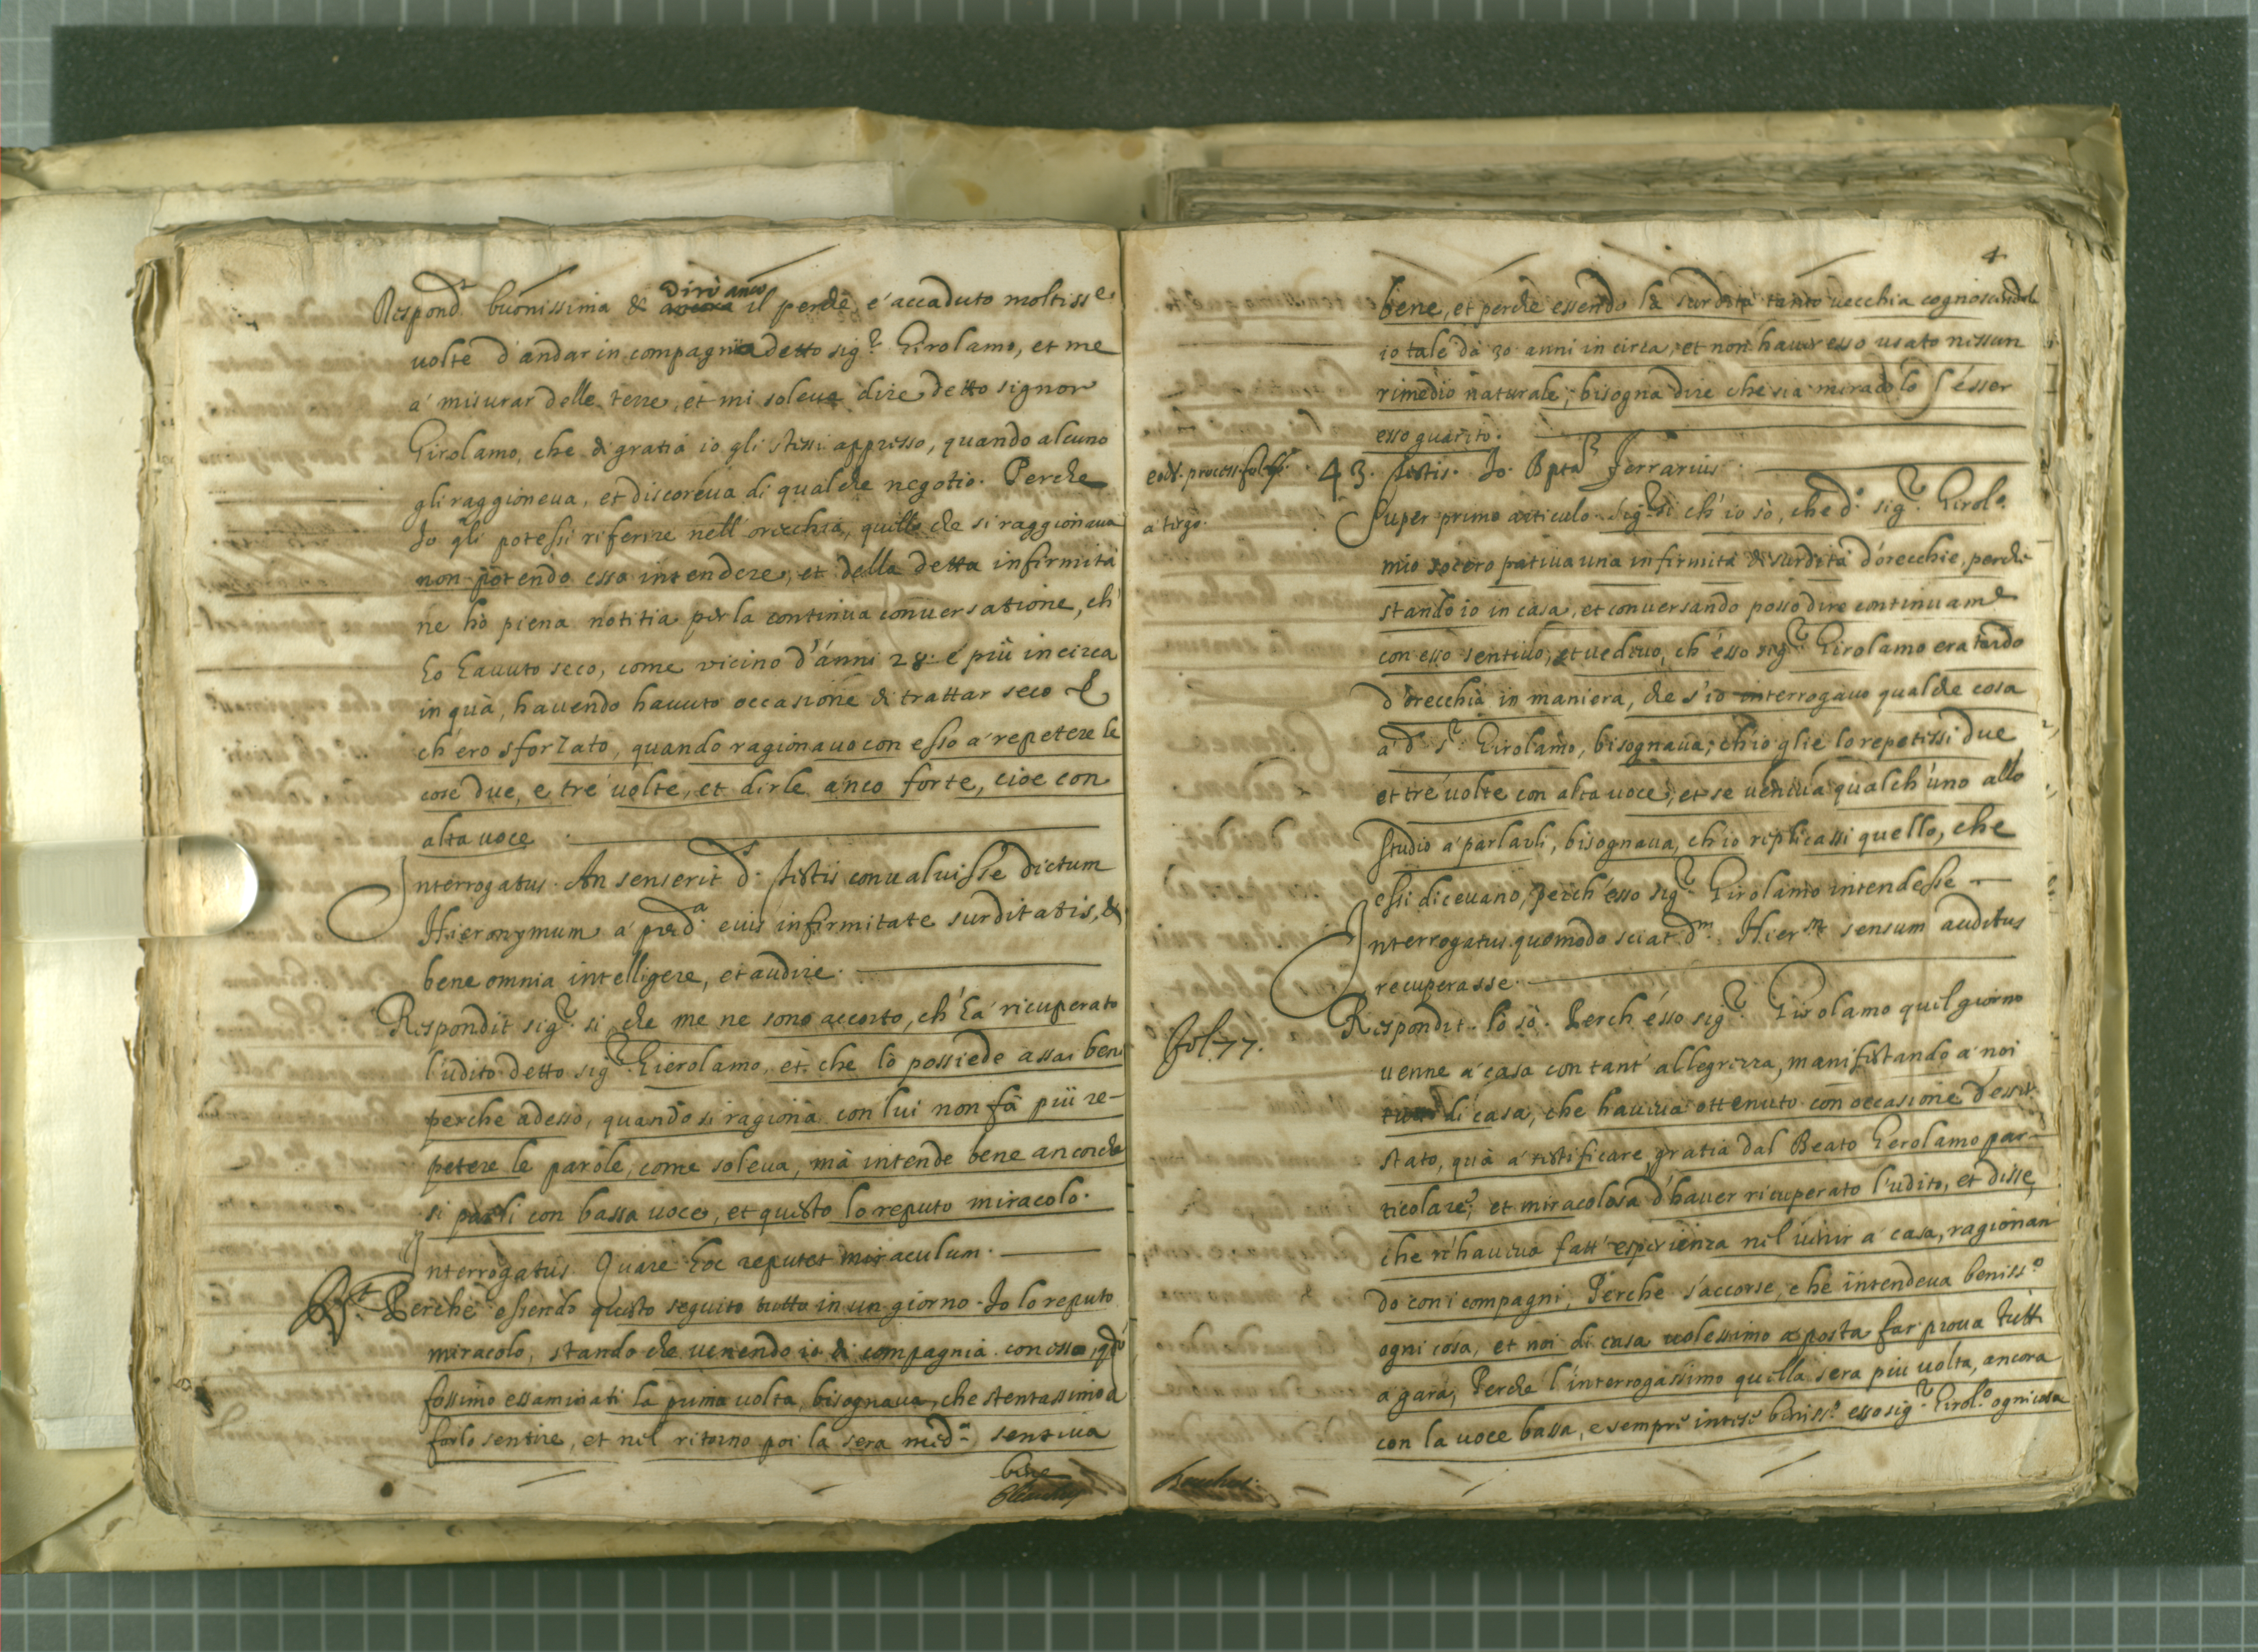 Respond.t buonissima & dirò anco il perche, è accaduto moltiss.e
uolte d'andar in compagnia detto sig.r Girolamo, et me
a' misurar delle terre, et mi soleua dire detto signor
Girolamo, che di gratia io gli stessi appresso, quando alcuno
gli raggioneua, et discoreua di qualche negotio. Perche
Io gli potessi riferire nell'orecchia, quello che si raggionaua
non potendo esso intendere, et della detta infirmità
ne hò piena notitia per la continua conuersatione, ch'
ho hauuto seco, come vicino d'anni 28. e più incirca
in quà, hauendo hauuto occasione di trattar seco &
ch'ero sforzato, quando ragionauo con esso a' repetere le
cose due, e trè uolte, et dirle anco forte, cioe con
alta uoce.
Interrogatus. An senserit d.s testis conualuisse dictum
Hieronymum a' pred.a eius infirmitate surditatis, &
bene omnia intelligere, et audire.
Respondit sig.r si, che me ne sono accorto, ch'ha' ricuperato
l'udito detto sig.r Gierolamo, et che lo possiede assai bene
perche adesso, quando si ragiona con lui non fà più re-
petere le parole, come soleua, mà intende bene ancorche
si parli con bassa uoce, et questo lo reputo miracolo.
Interrogatus. Quare hoc reputet miraculum.
R.t Perche essendo questo seguito tutto in un giorno. Io lo reputo
miracolo, stando che uenendo io di compagnia con esso, qdo
fossimo essaminati la prima uolta, bisognaua, che stentassimo a
farlo sentire, et nel ritorno poi la sera med.a sentiua
bene
4
bene, et perche essendo la surdità tanto uecchia cognoscendola
io tale dà 30 anni in circa, et non hauer esso usato nissun
rimedio naturale, bisogna dire che sia miracolo l'esser
esso guarito.
eod. process. fol.
a tergo.
43. testis. Io. Bpta Ferrarius.
Super primo articulo. Sig.r si ch'io sò, che d.o sig.r Girol.o
mio socero patiua una infirmità di surdità d'orecchie, perche
stando io in casa, et conuersando posso dire continuam.e
con esso sentiuo, et uedeuo, ch'esso sig.r Girolamo era tardo
d'orecchia in maniera, che s'io interrogauo qualche cosa
a' d.o s.r Girolamo, bisognaua, ch'io glie lo repetissi due
et trè uolte con alta uoce, et se ueniua qualch'uno allo
studio a' parlarli, bisognaua, ch'io replicassi quello, che
essi diceuano, perch'esso sig.r Girolamo intendesse
Interrogatus. quomodo sciat d.m Hier.m sensum auditus
recuperasse.
fol. 77.
Respondit. lo sò. Perch'esso sig.r Girolamo quel giorno
uenne a' casa con tant'allegrezza, manifestando a' noi
di casa, che haueua ottenuto con occasione d'esser
stato, quà a' testificare, gratia dal Beato Gerolamo par-
ticolare, et miracolosa d'hauer ricuperato l'udito, et disse,
che n'haueua fatt'esperienza nel uenir a' casa, ragionan
do con i compagni, Perche s'accorse, che intendeua beniss.o
ogni cosa, et noi di casa uolessimo a posta far proua tutti
a gara, Perche l'interrogassimo quella sera più uolta, ancora
con la uoce bassa, e sempre intese beniss.o esso sig.r Girol.o ogni cosa